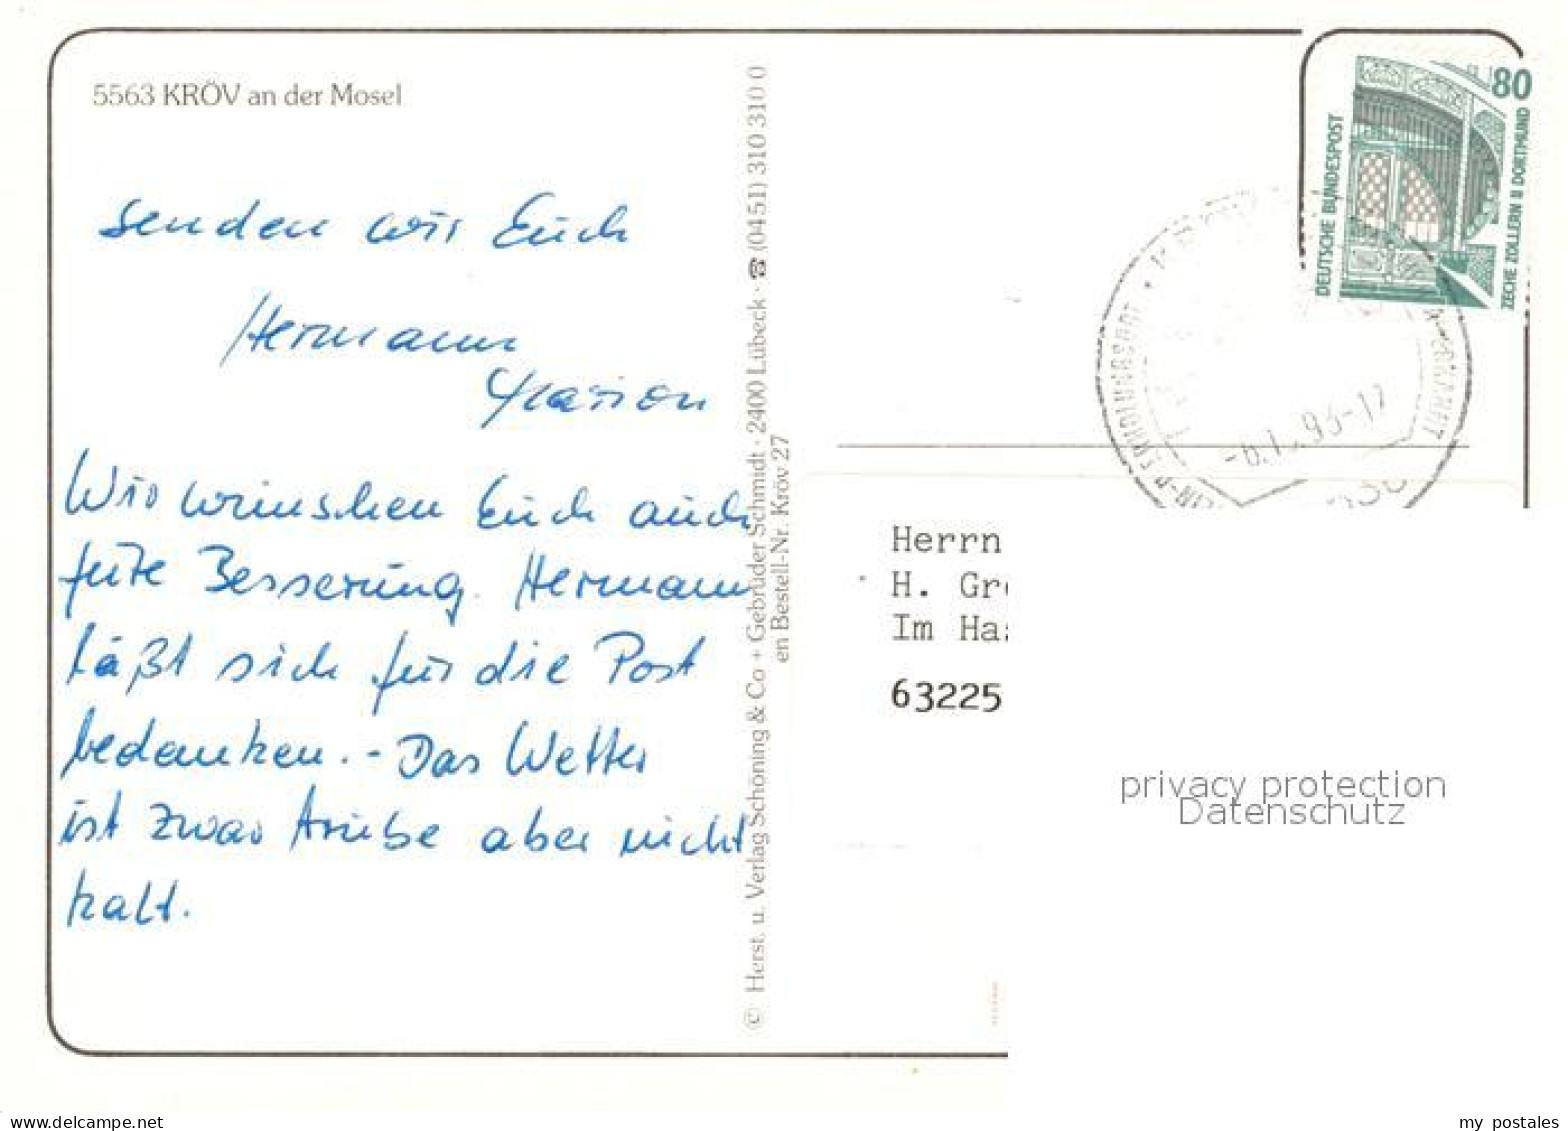 5563 KRÖV an der Mosel
senden wir Euch
Hermann
Marion
Wir wünschen Euch auch
gute Besserung. Hermann
läßt sich für die Post
bedanken. - Das Wetter
ist zwar trübe aber nicht
kalt.
© Herst. u. Verlag Schöning & Co + Gebrüder Schmidt · 2400 Lübeck · ☎ (0451) 310 310 0
en Bestell-Nr. Kröv 27
80
DEUTSCHE BUNDESPOST
ZECHE ZOLLERN II DORTMUND
Herrn
H. Gr
Im Ha
63225
privacy protection
Datenschutz
my postales